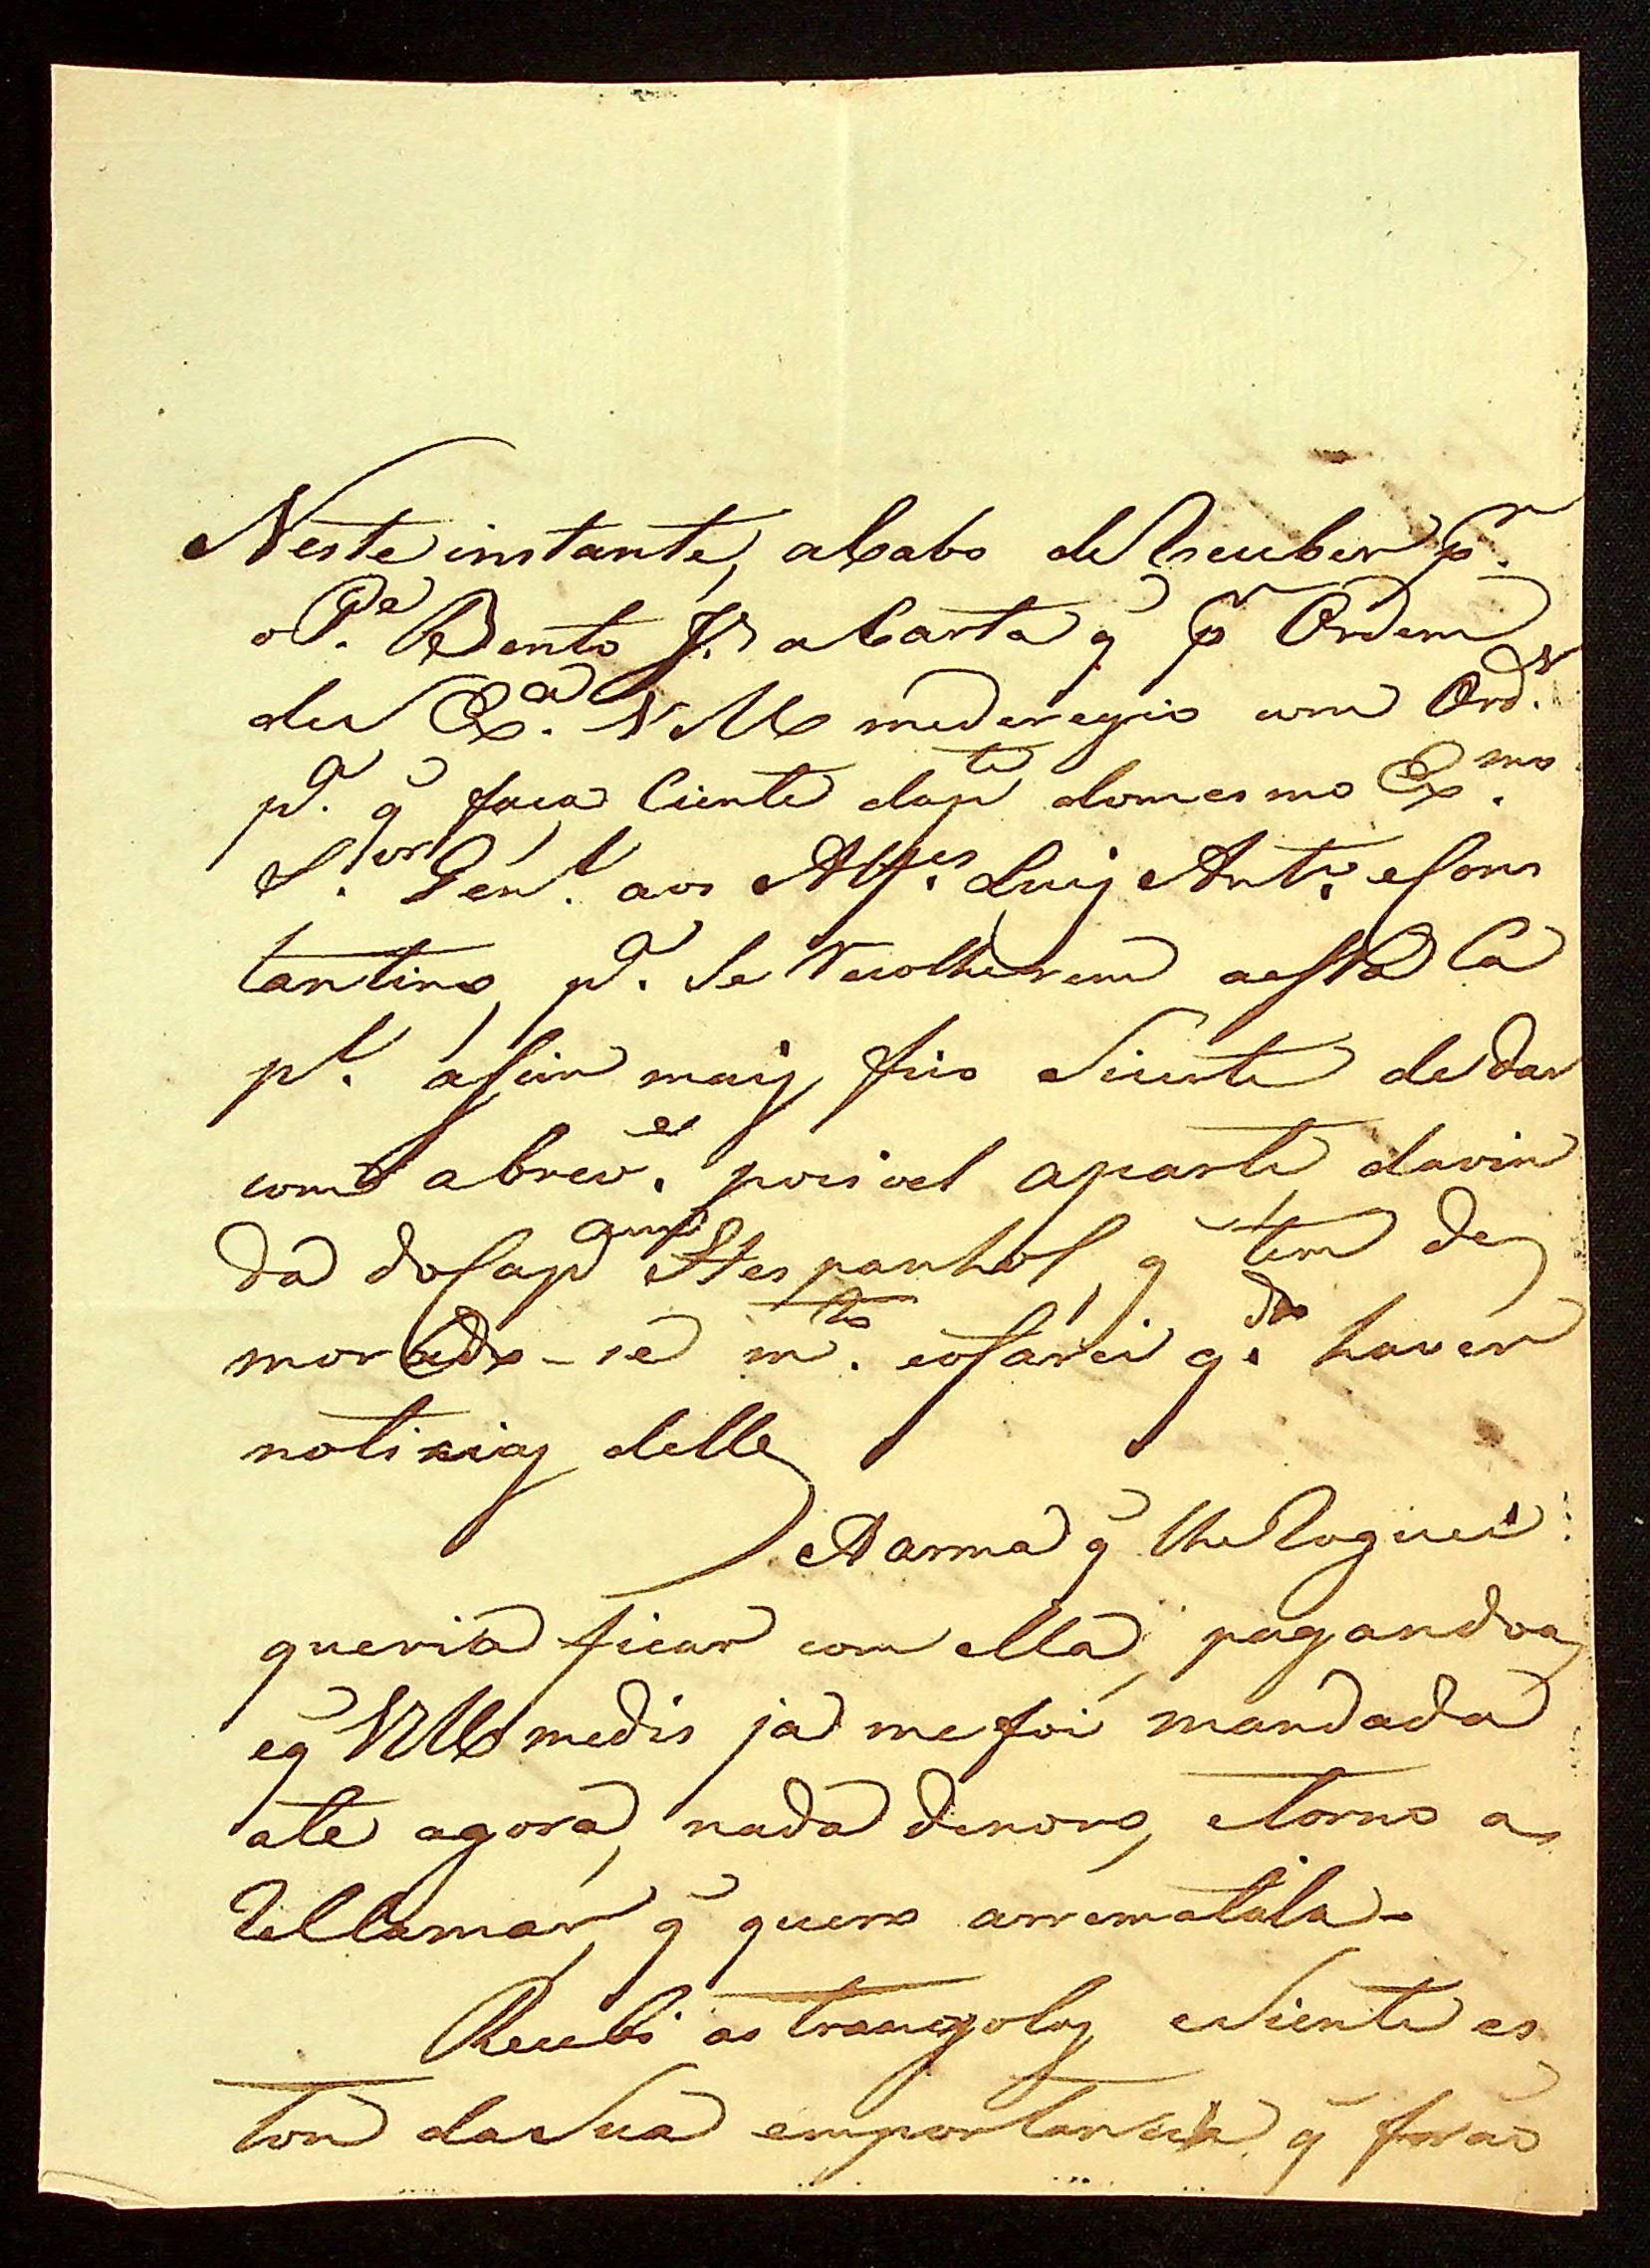 Neste instante, acabo de receber p.r
o P.e Bento Jr. a Carta q̃ p.r Ordem
de S Ex.a V M me deregio com Ord.
p.a q̃ faca Ciente da p.te do mesmo Ex.mo
S.or Gen.l aos Alf.es Luiz Ant.o e Cons
tantino, p.a Se recolherem a essa Ca
p.l asim mais fico Siente de dar
com a brev.e pocivel a parte da vin
da do Cap.am Hespanhol, q̃ tem de
morado-se m.to e o farei q.do haver
noticias delle
A arma q̃ lhe Roguei
queria ficar com ella, pagandoa
e q̃ VM me dis ja me foi mandada
ate agora, nada de novo, e torno a
Recllamar, q̃ quero arrematala-
Recebi as e Siente es
tou da Sua emportancia q̃ forão